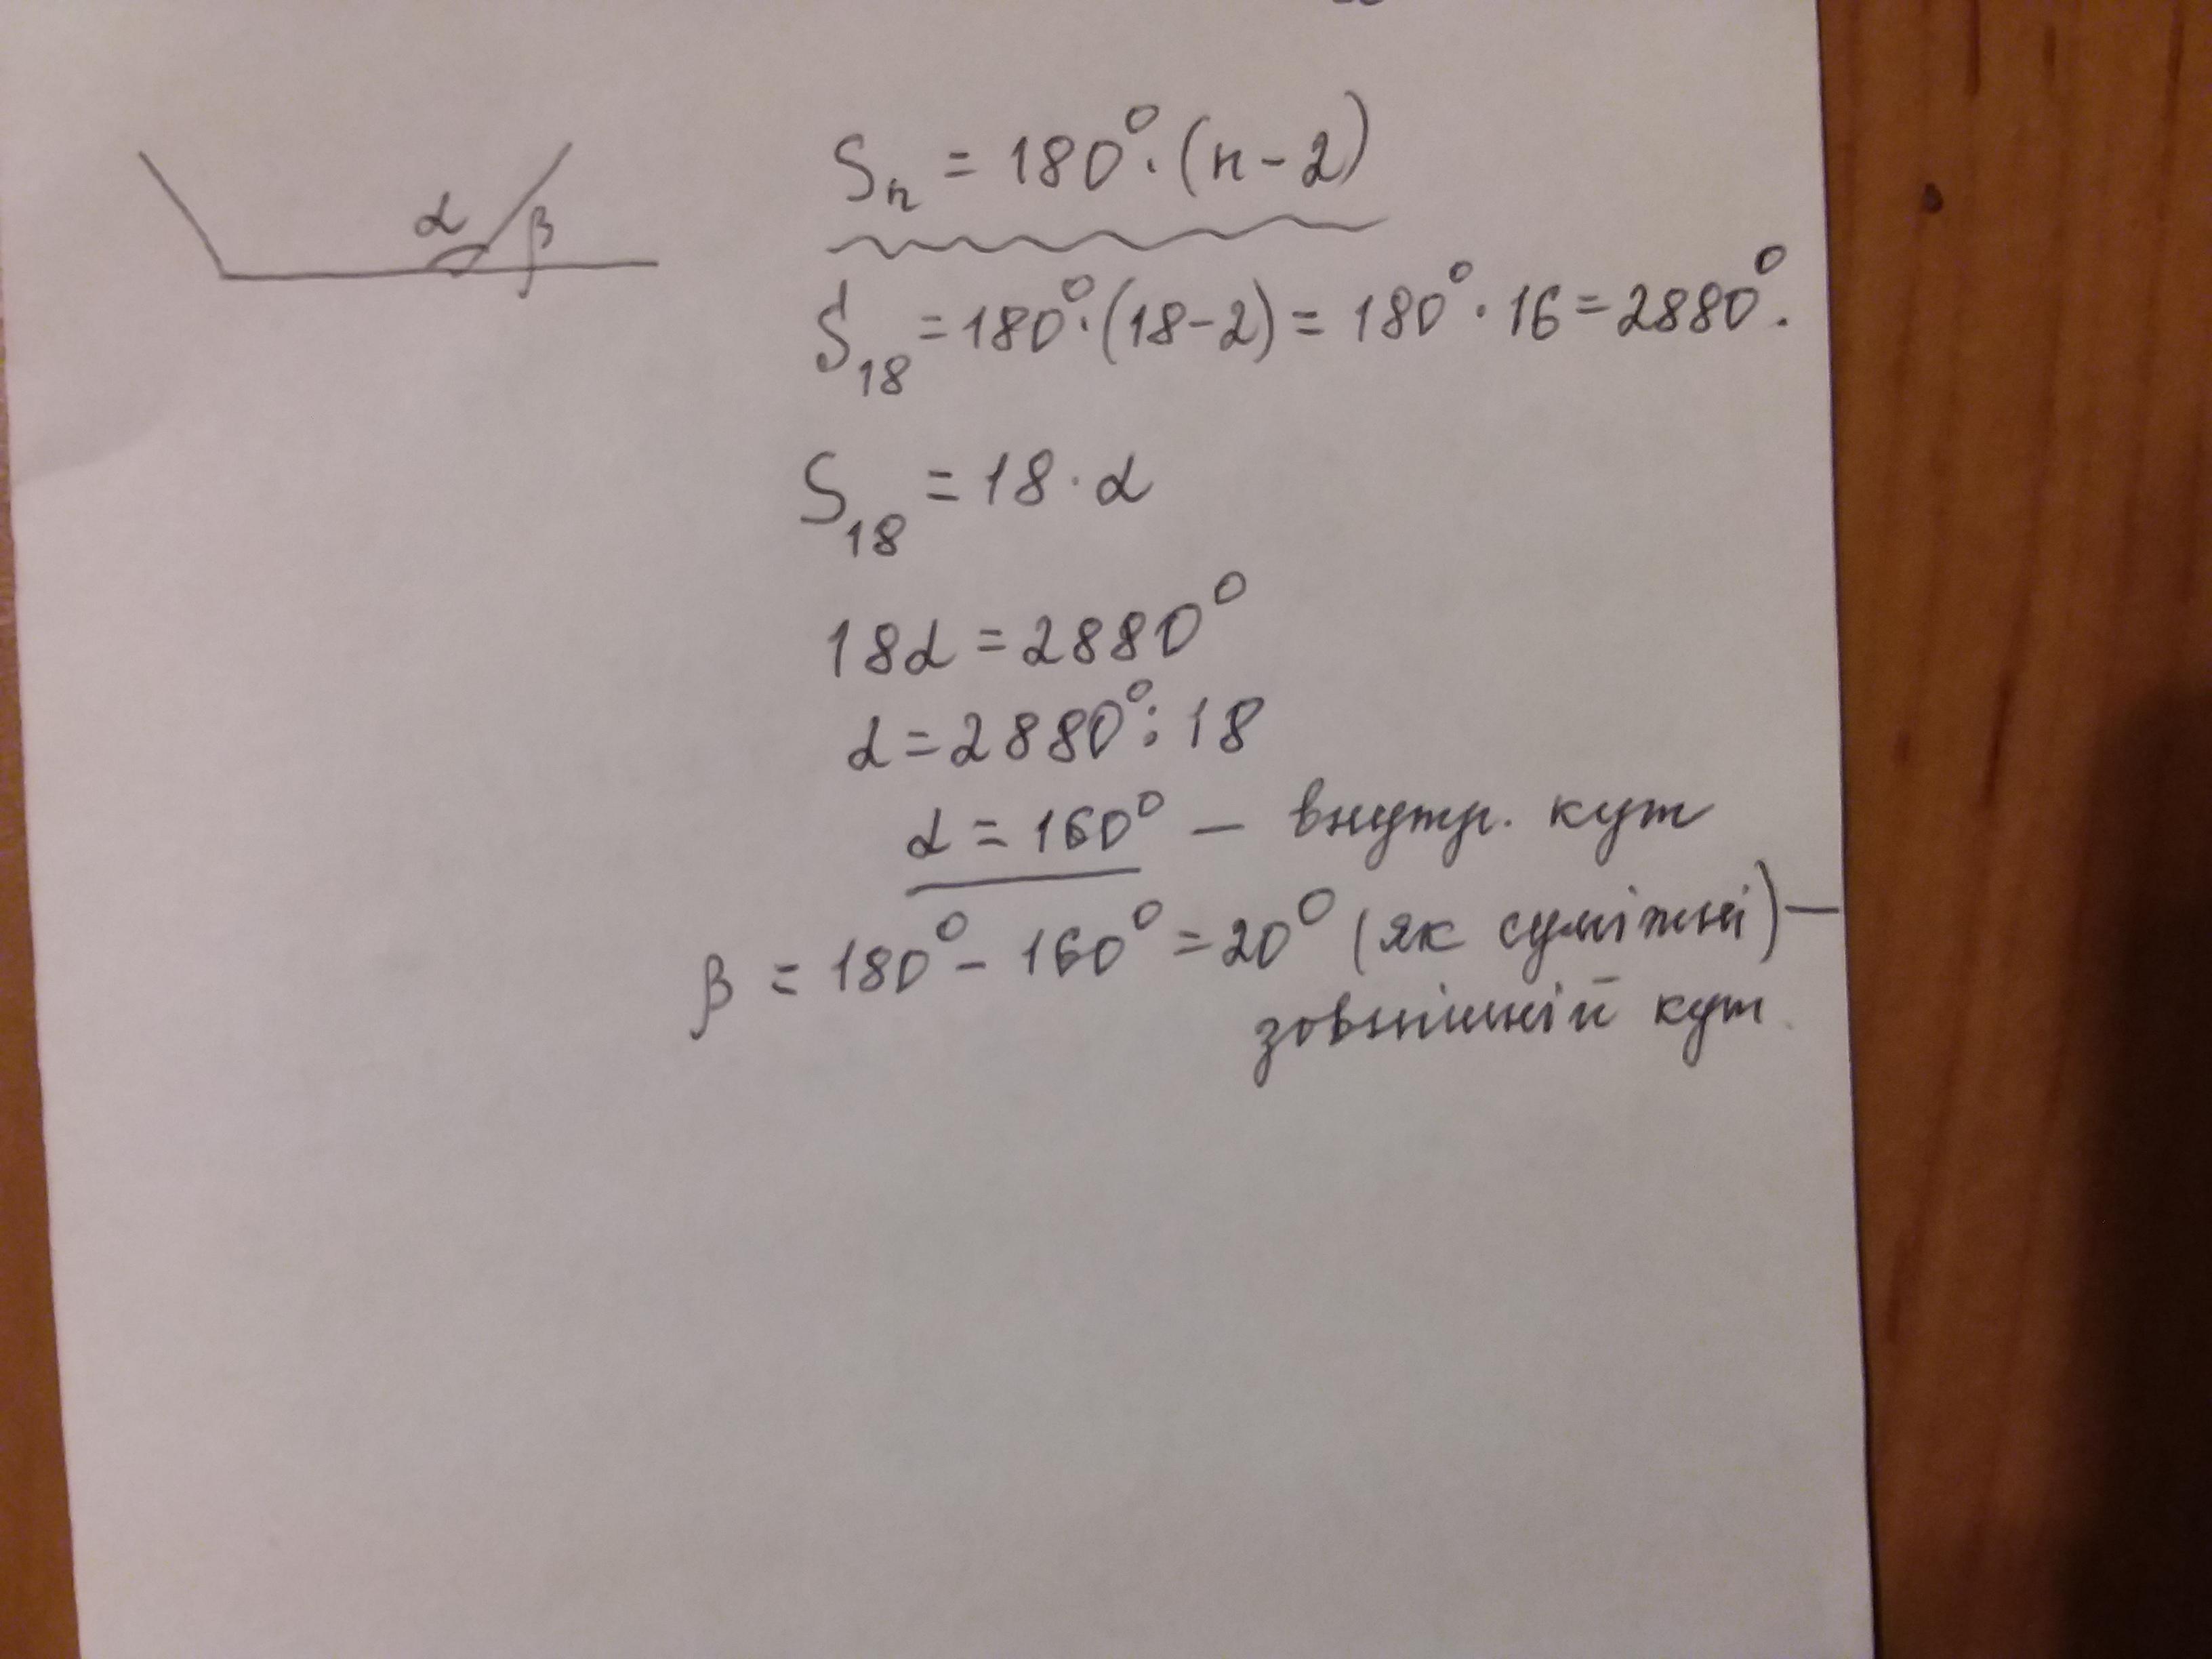 α β
Sₙ = 180°·(n-2)
S₁₈ = 180°·(18-2) = 180°·16 = 2880°.
S₁₈ = 18·α
18α = 2880°
α = 2880°:18
α = 160° — внутр. кут
β = 180° - 160° = 20° (як суміжні) —
зовнішній кут.